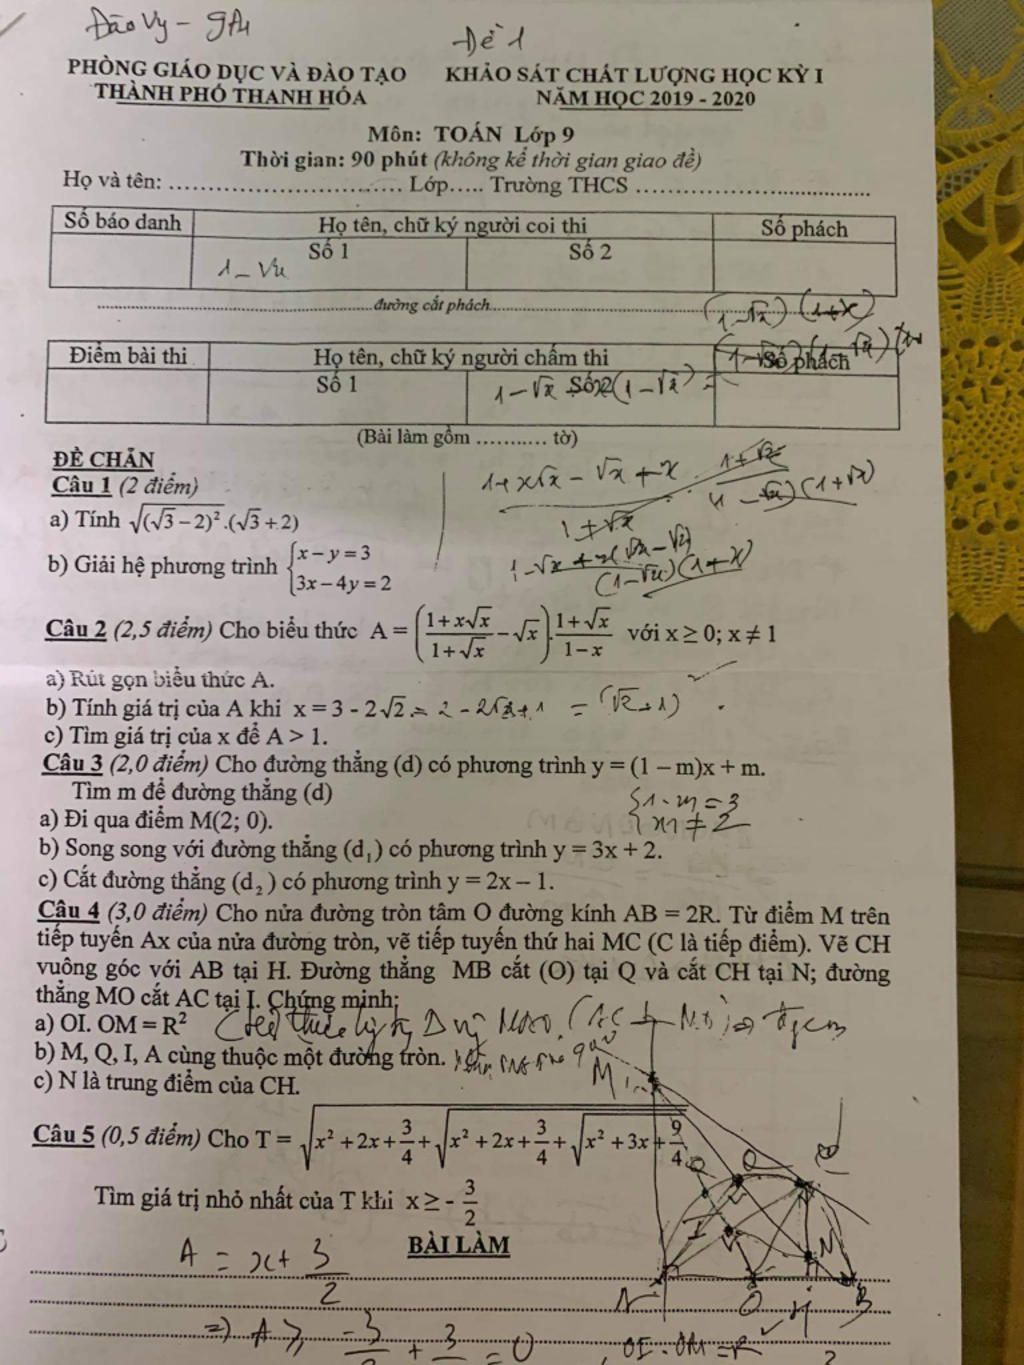 Đào Vy -
Đề 1
PHÒNG GIÁO DỤC VÀ ĐÀO TẠO
THÀNH PHỐ THANH HÓA
KHẢO SÁT CHẤT LƯỢNG HỌC KỲ I
NĂM HỌC 2019 - 2020
Môn: TOÁN Lớp 9
Thời gian: 90 phút (không kể thời gian giao đề)
Họ và tên: .................................. Lớp..... Trường THCS ..................................
Số báo danh
Họ tên, chữ ký người coi thi
Số phách
Số 1
Số 2
..............................đường cắt phách..............................
(1-√x) (1+x)
Điểm bài thi
Họ tên, chữ ký người chấm thi
Số phách
Số 1
Số 2
1-√x (1-√x) =
(Bài làm gồm ........... tờ)
ĐỀ CHẴN
Câu 1 (2 điểm)
a) Tính √((√3 − 2)²).(√3 + 2)
b) Giải hệ phương trình {x − y = 3
{3x − 4y = 2
1+x√x - √x + x
1+√x
Câu 2 (2,5 điểm) Cho biểu thức A = ((1 + x√x)/(1 + √x) − √x).(1 + √x)/(1 − x) với x ≥ 0; x ≠ 1
a) Rút gọn biểu thức A.
b) Tính giá trị của A khi x = 3 - 2√2 = 2 - 2√2 + 1 = (√2+1)
c) Tìm giá trị của x để A > 1.
Câu 3 (2,0 điểm) Cho đường thẳng (d) có phương trình y = (1 – m)x + m.
Tìm m để đường thẳng (d)
{1-m = 3
{m ≠ 2
a) Đi qua điểm M(2; 0).
b) Song song với đường thẳng (d₁) có phương trình y = 3x + 2.
c) Cắt đường thẳng (d₂) có phương trình y = 2x – 1.
Câu 4 (3,0 điểm) Cho nửa đường tròn tâm O đường kính AB = 2R. Từ điểm M trên
tiếp tuyến Ax của nửa đường tròn, vẽ tiếp tuyến thứ hai MC (C là tiếp điểm). Vẽ CH
vuông góc với AB tại H. Đường thẳng MB cắt (O) tại Q và cắt CH tại N; đường
thẳng MO cắt AC tại I. Chứng minh:
a) OI. OM = R²
b) M, Q, I, A cùng thuộc một đường tròn.
c) N là trung điểm của CH.
M
Câu 5 (0,5 điểm) Cho T = √(x² + 2x + 3/4 + √(x² + 2x + 3/4 + √(x² + 3x + 9/4)))
Q
I
Tìm giá trị nhỏ nhất của T khi x ≥ - 3/2
BÀI LÀM
A = x + 3/2
O
H
B
=> A ≥ -3/2 + 3/2 = 0
OI . OM = R